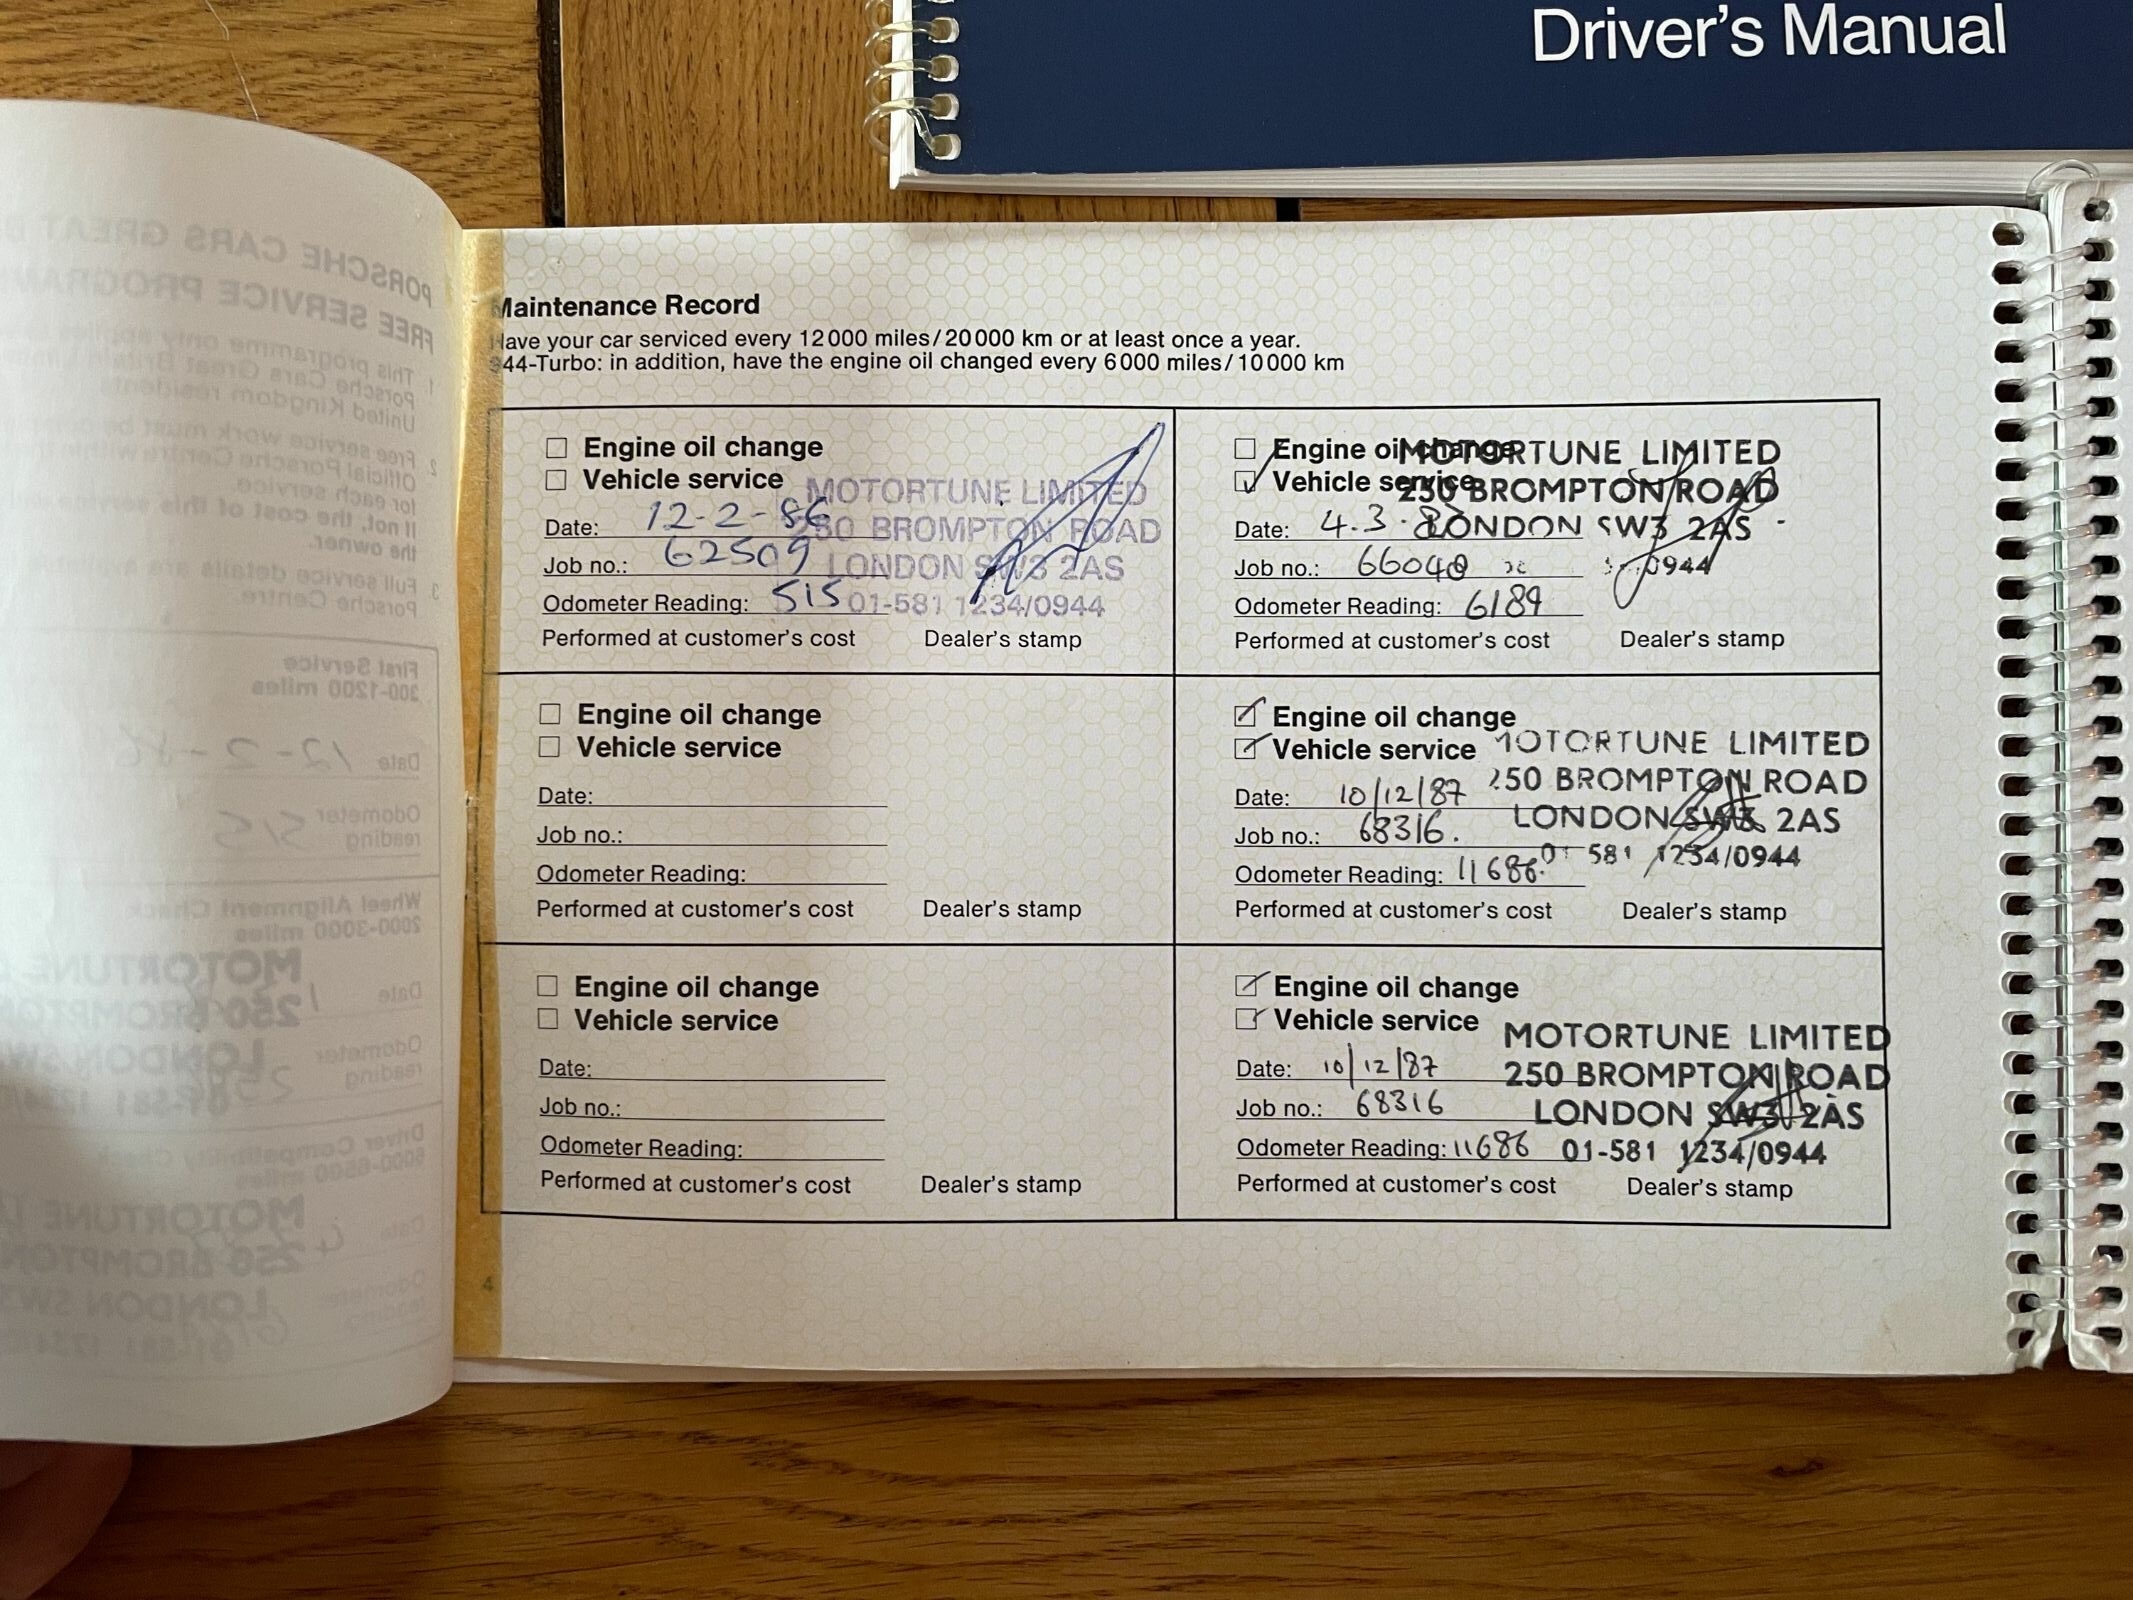 Driver's Manual
Maintenance Record
Have your car serviced every 12 000 miles/20 000 km or at least once a year.
944-Turbo: in addition, have the engine oil changed every 6 000 miles/10 000 km
Engine oil change
Vehicle service
Date: 12-2-86
Job no.: 62509
Odometer Reading: 515
Performed at customer's cost Dealer's stamp
MOTORTUNE LIMITED
250 BROMPTON ROAD
LONDON SW3 2AS
01-581 1234/0944
Engine oil change
Vehicle service
Date: 4.3.
Job no.: 66040
Odometer Reading: 6189
Performed at customer's cost Dealer's stamp
MOTORTUNE LIMITED
250 BROMPTON ROAD
LONDON SW3 2AS
0944
Engine oil change
Vehicle service
Date:
Job no.:
Odometer Reading:
Performed at customer's cost Dealer's stamp
Engine oil change
Vehicle service
Date: 10/12/87
Job no.: 68316.
Odometer Reading: 11686.
Performed at customer's cost Dealer's stamp
MOTORTUNE LIMITED
250 BROMPTON ROAD
LONDON SW3 2AS
01 581 1234/0944
Engine oil change
Vehicle service
Date:
Job no.:
Odometer Reading:
Performed at customer's cost Dealer's stamp
Engine oil change
Vehicle service
Date: 10/12/87
Job no.: 68316
Odometer Reading: 11686
Performed at customer's cost Dealer's stamp
MOTORTUNE LIMITED
250 BROMPTON ROAD
LONDON SW3 2AS
01-581 1234/0944
4